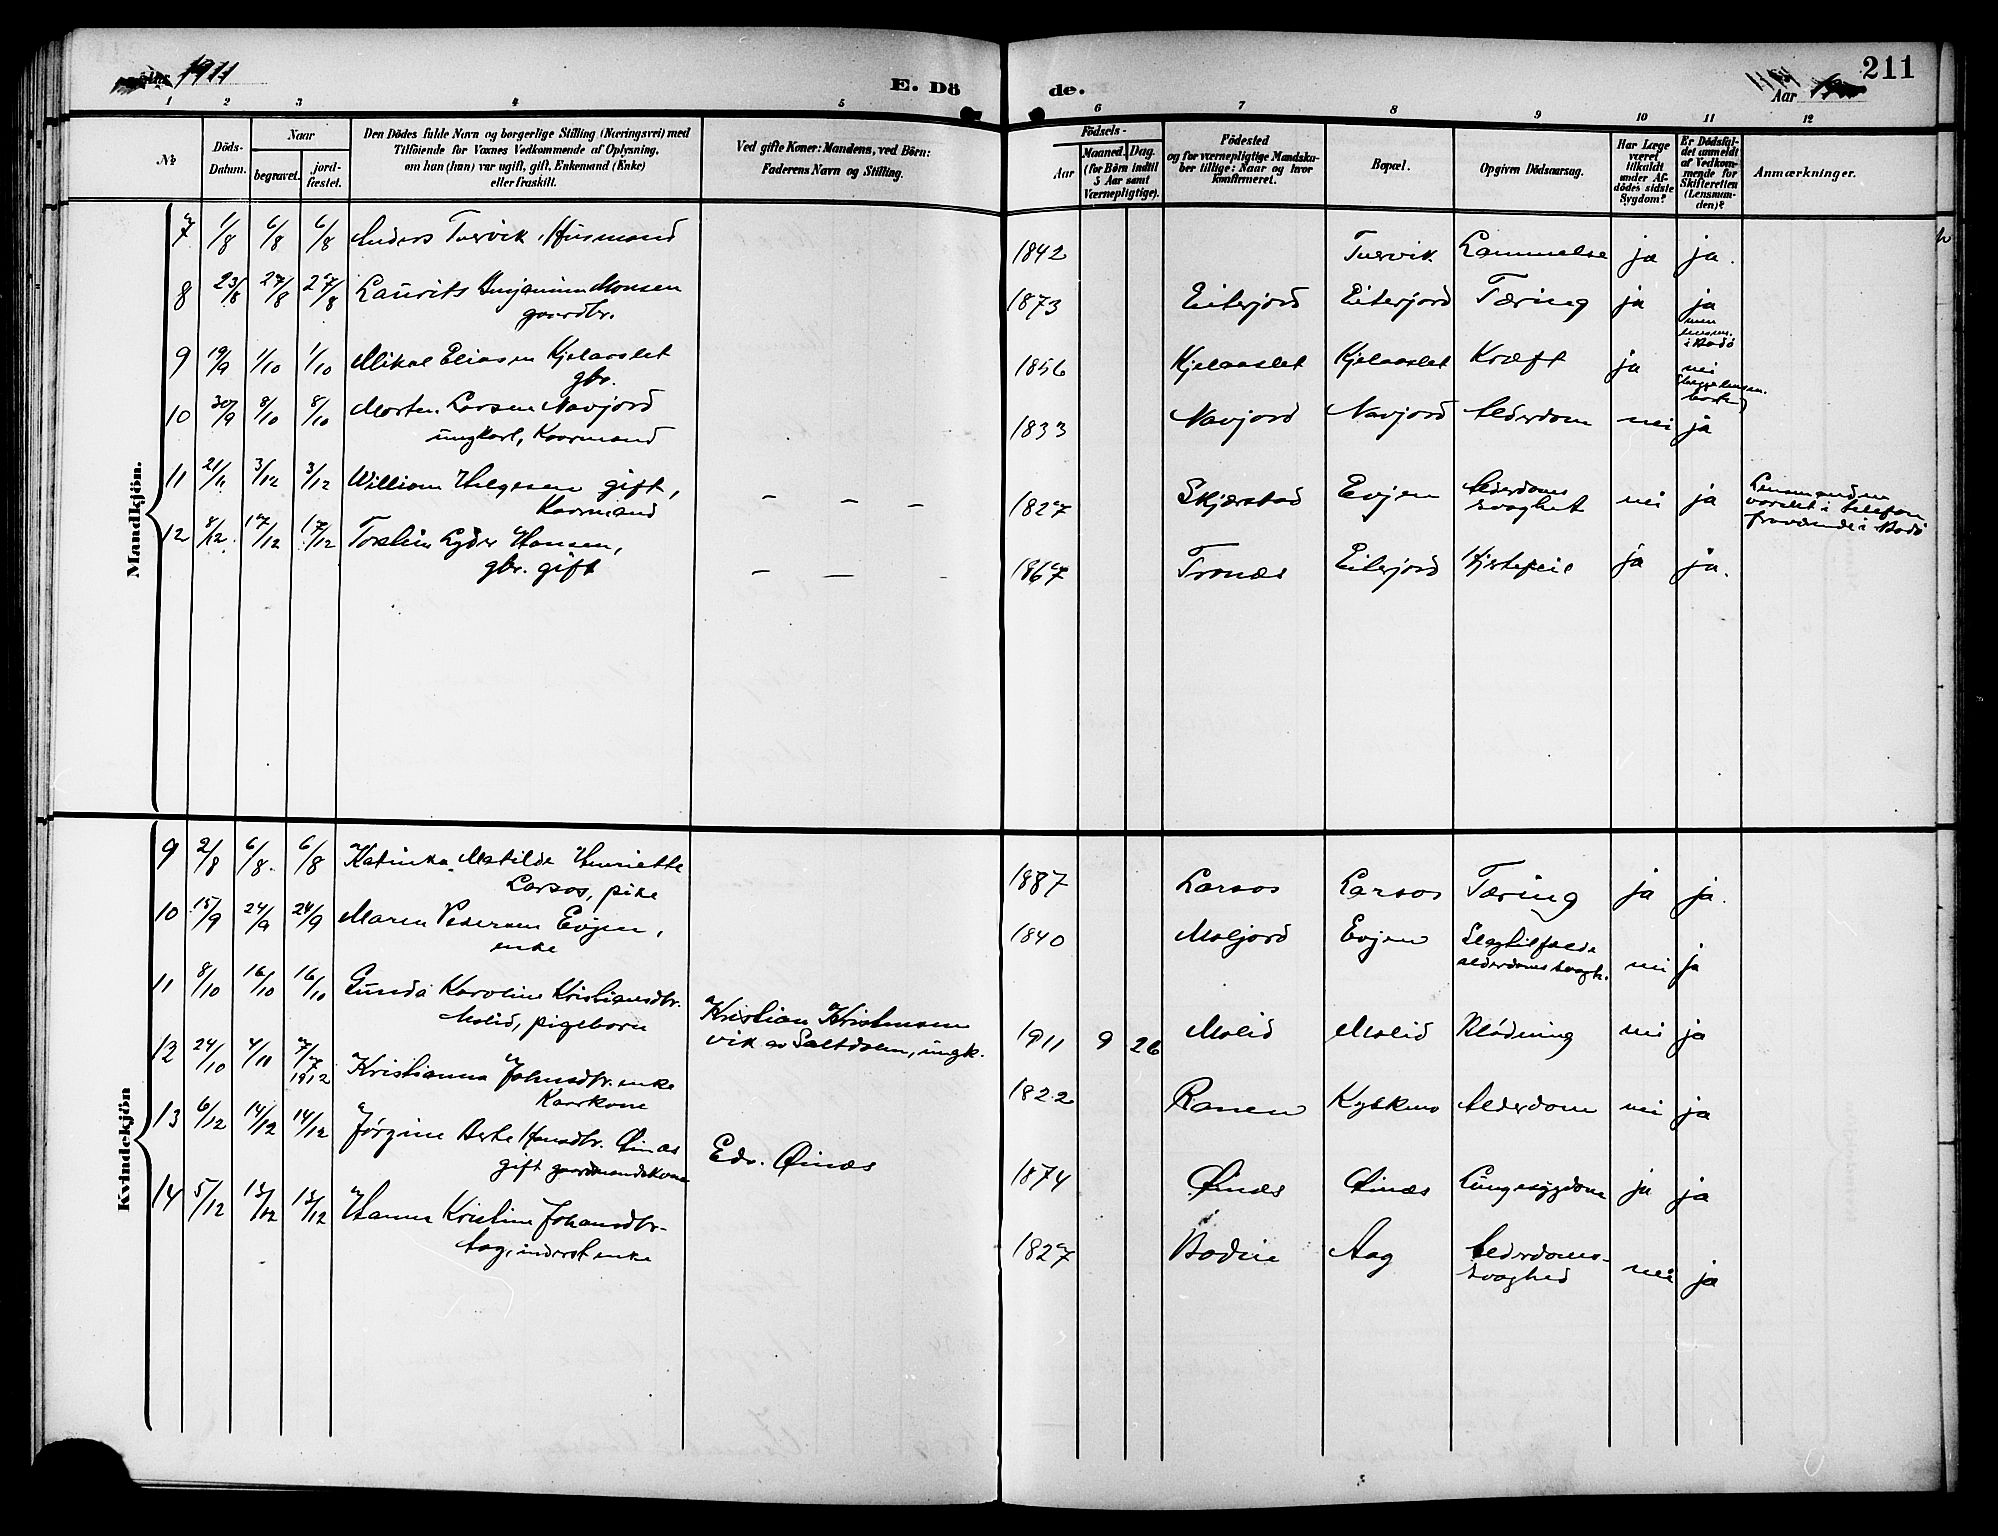 1911
E. Dö
de.
Aar
211
1 2 3 4 5 6 7 8 9 10 11 12
№
Döds-
Datum.
Naar
begravet.
jord-
fæstet.
Den Dödes fulde Navn og borgerlige Stilling (Næringsvei) med
Tilföiende for Voxnes Vedkommende af Oplysning,
om han (hun) var ugift, gift, Enkemand (Enke)
eller fraskilt.
Ved gifte Koner: Mandens, ved Börn:
Faderens Navn og Stilling.
Födsels-
Aar
Maaned.
Dag.
(for Börn indtil
5 Aar samt
Værnepligtige).
Födested
og for værnepligtige Mandska-
ber tillige: Naar og hvor
konfirmeret.
Bopæl.
Opgiven Dödsaarsag.
Har Læge
været
tilkaldt
under Af-
dödes sidste
Sygdom?
Er Dödsfal-
det anmeldt
af Vedkom-
mende for
Skifteretten
(Lensman-
den)?
Anmærkninger.
Mandkjön.
7 1/8 6/8 6/8 Anders Tuervik, Husmand 1842 Tuervik Lammelse ja ja.
8 23/8 27/8 27/8 Laurits Benjaminn Monsen 1873 Eiterjord Eiterjord Tæring ja ja
gaardbr. men
lensm.
i Bodö
9 19/9 1/10 1/10 Mikal Eliasen Kjelaaslet 1856 Kjelaaslet Kjelaaslet Kræft ja nei
gbr.
10 30/9 8/10 8/10 Morten Larsen Navjord 1833 Navjord Navjord Alderdom nei ja
ungkarl, Kaarmand
11 21/11 3/12 3/12 William Helgesen gift, – – – 1827 Skjærstad Evjen Alderdoms nei ja
Kaarmand svaghet
Lensmanden
varslet i telefon
fraværende i Bodö
12 8/12 17/12 17/12 Lyder Hansen, – – – 1867 Tronæs Eiterjord Hjertefeil ja ja.
gbr. gift
Kvindekjön
9 2/8 6/8 6/8 Katinka Matilde Henriette 1887 Larsos Larsos Tæring ja ja.
Larsos, pike
10 15/9 24/9 24/9 Maren Pedersen Evjen, 1840 Moljord Evjen Slagtilfælde nei ja
enke alderdomssvagh.
11 8/10 16/10 16/10 Gunda Karoline Kristiansdtr. Kristian Kristensen 1911 9 26 Molid Molid Blödning nei ja
Molid, pigebarn vik av Saltdalen, ungk.
12 24/10 4/11 7/7 1912 Kristianna Johnsdtr. enke 1822 Ranen Alderdom nei ja
Kaarkone
13 6/12 14/12 14/12 Jørgine Berte Hansdtr. Øinæs Edv. Øinæs 1874 Øinæs Øinæs Lungesygdom ja ja
gift gaardmandskone
14 5/12 13/12 13/12 Hanna Kristine Johansdtr. 1827 Bodin Aag Alderdoms- nei ja
Aag, inderst enke svaghed